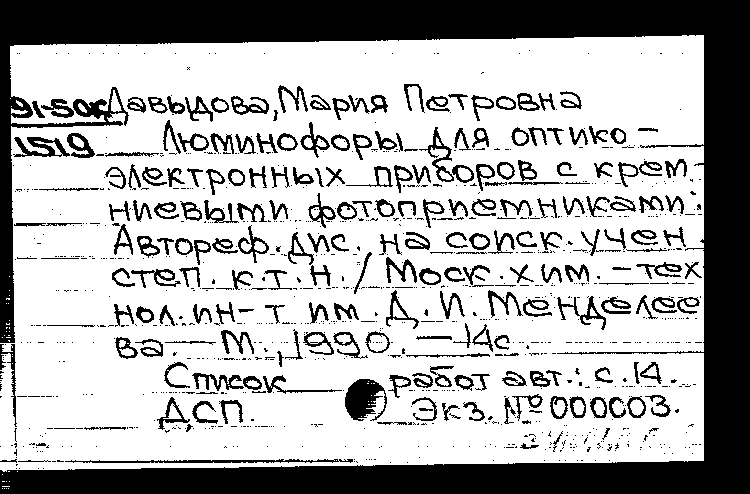 91-50к Давыдова, Мария Петровна
1519 Люминофоры для оптико-
электронных приборов с крем-
ниевыми фотоприемниками:
Автореф. дис. на соиск. учен.
степ. к.т.н. / Моск. хим.-тех
нол. ин-т им. Д. И. Менделее
ва. — М., 1990. — 14с.
Список работ авт.: с. 14.
ДСП. Экз. № 000003.